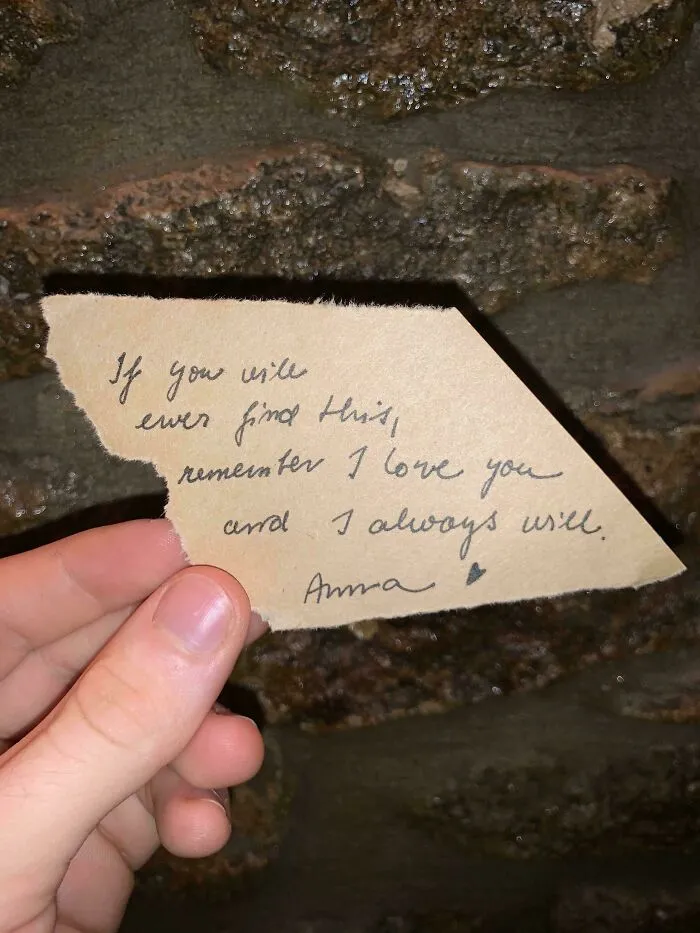 If you will
ever find this,
remember I love you
and I always will.
Anna ♥